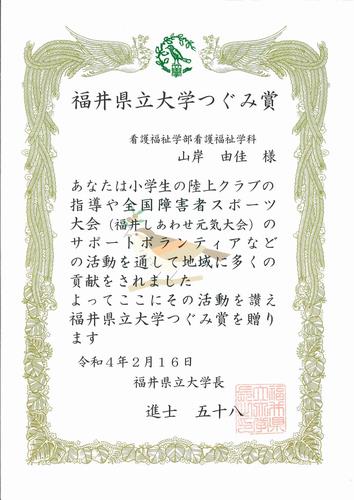 福井県立大学つぐみ賞
看護福祉学部看護福祉学科
山岸 由佳 様
あなたは小学生の陸上クラブの
指導や全国障害者スポーツ
大会（福井しあわせ元気大会）の
サポートボランティアなど
の活動を通して地域に多くの
貢献をされました
よってここにその活動を讃え
福井県立大学つぐみ賞を贈り
ます
令和４年２月１６日
福井県立大学長
進士 五十八